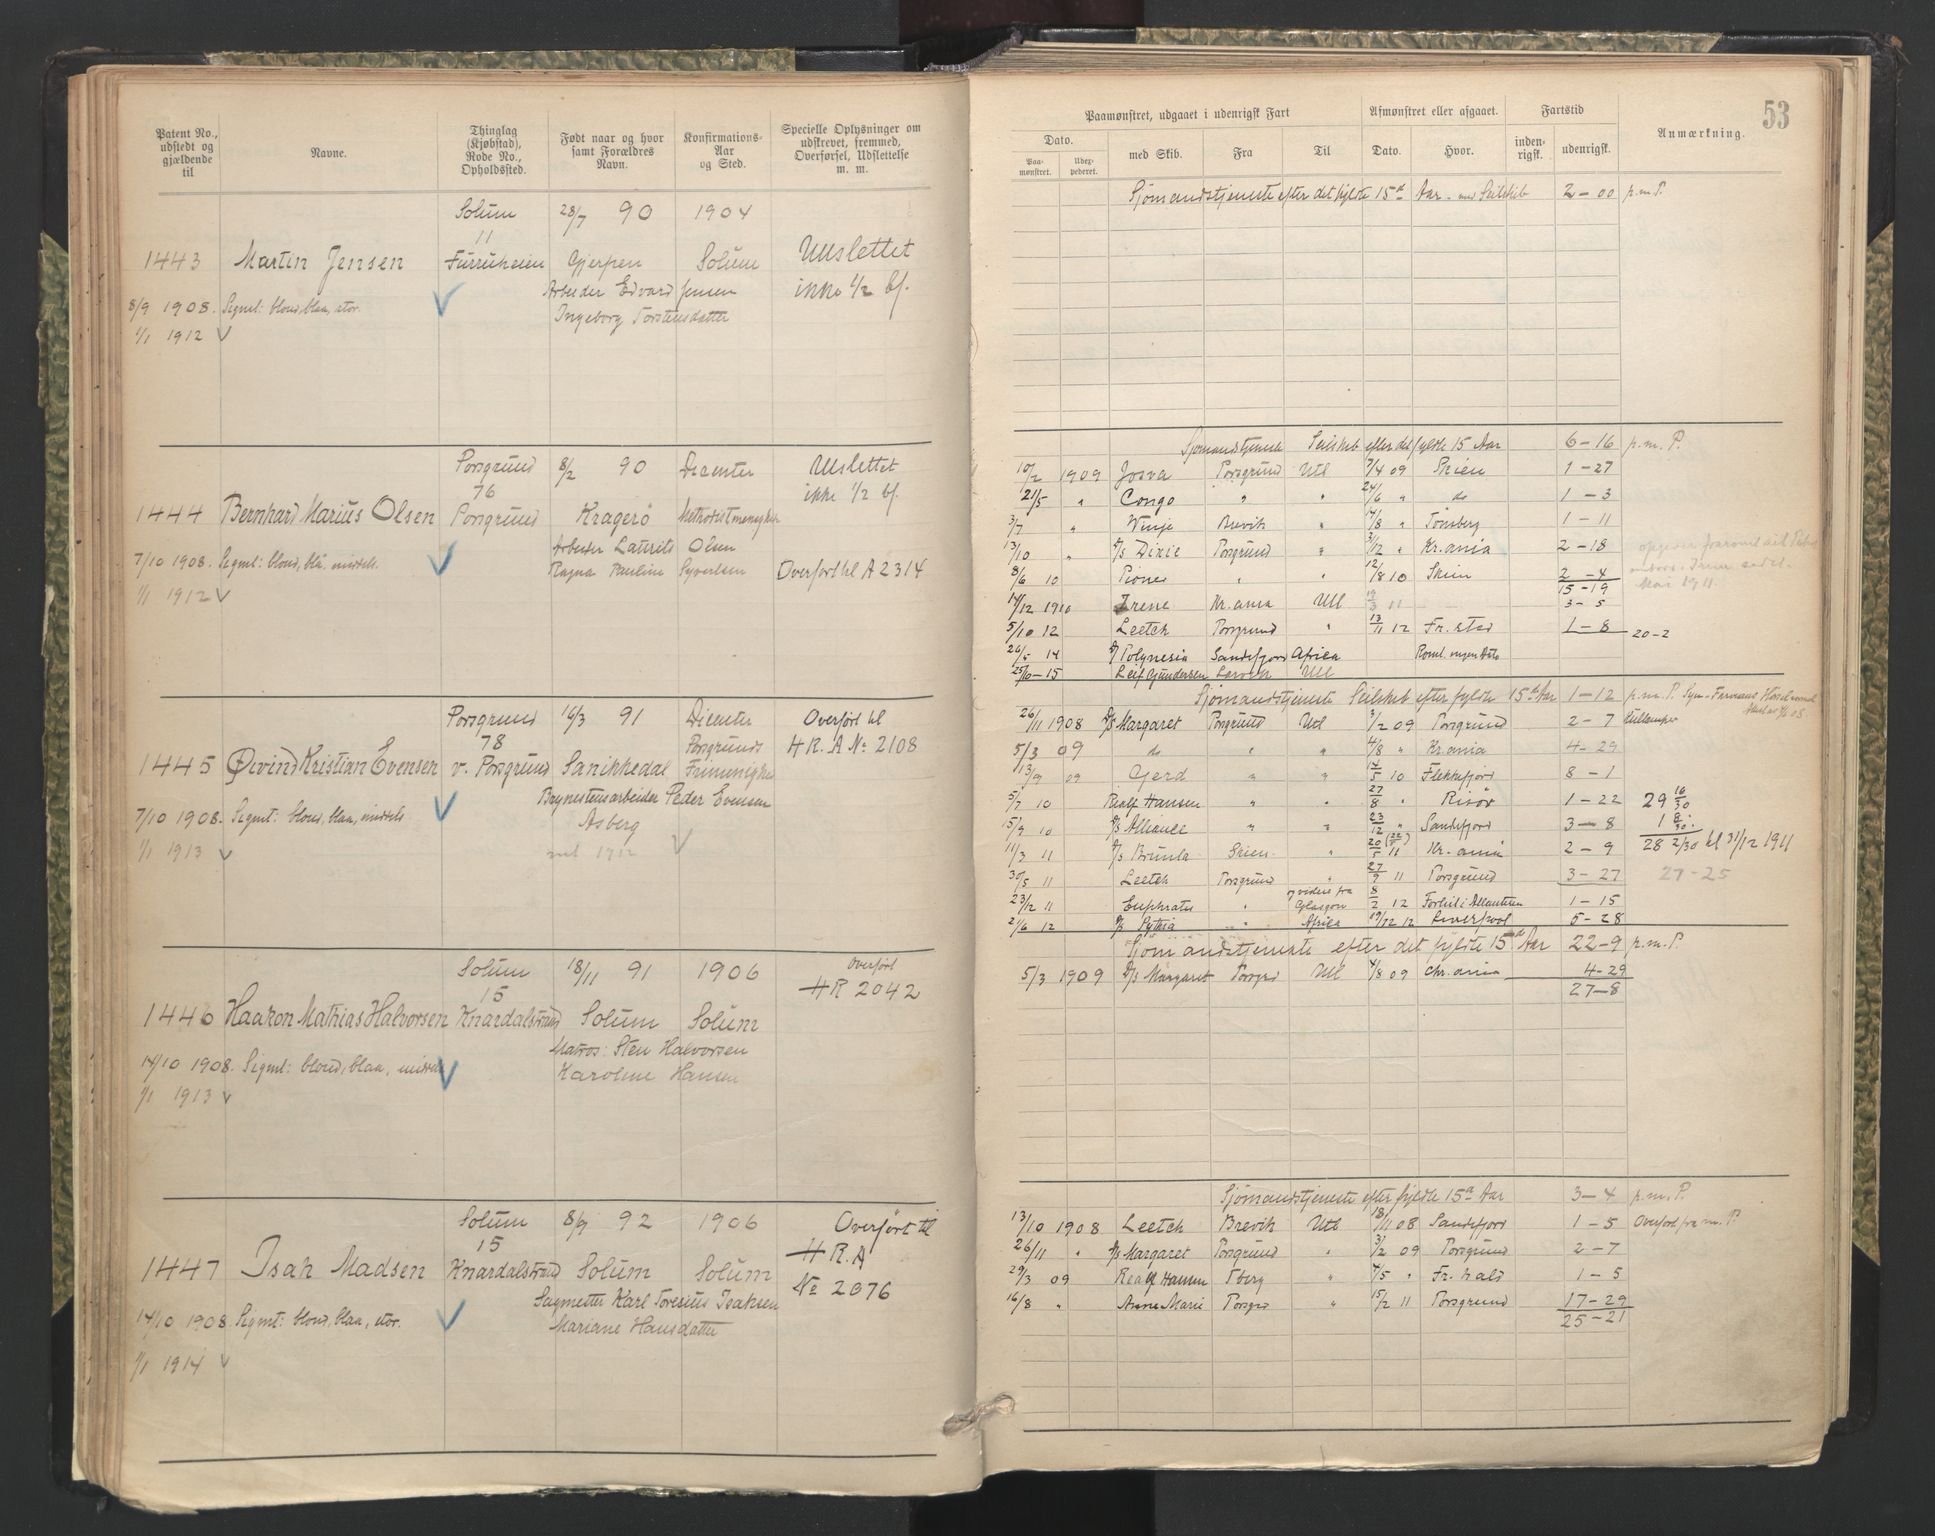 Patent No., udstedt og gjældende til
Navne.
Thinglag (Kjøbstad), Rode No., Opholdssted.
Født naar og hvor samt Forældres Navn.
Konfirmations-Aar og Sted.
Specielle Oplysninger om udskrevet, fremmed, Overførsel, Udslettelse m. m.
Solum 28/7 90 1904
11
1443 Martin Jensen Furruheien Gjerpen Solum Udslettet
Arbeider Edvard Jensen ikke 1/2 bf.
8/9 1908. Signlt: blond, blaa, stor.
Ingeborg Torstensdatter
1/1 1912
Porsgrund 8/2 90 Dicenter Udslettet
76 ikke 1/2 bf.
1444 Bernhard Marius Olsen Porsgrund Kragerö Methodistmenighe
Arbeider Laurits Olsen
7/10 1908. Signlt: blond, blå, middels. Ragna Pauline Syvertsen Overfört til A 2314
1/1 1912
Porsgrund 16/3 91 Dicenter Overfört til
78 Porsgrunds H R. A No 2108
1445 Øivind Kristian Evensen v. Porsgrund Sanikkedal Frimenighed
Brynestensarbeider Peder Evensen
7/10 1908. Signlt: blond, blaa, middels Asberg
1/1 1913 1912
Solum 18/11 91 1906 Overført
15 H R 2042
1446 Haakon Mathias Halvorsen Knardalstrand Solum Solum
Matros: Sten Halvorsen
14/10 1908. Signlt: blond, blaa, middels
Karoline Hansen
1/1 1913
Solum 8/9 92 1906 Overfört til
15 H R. A
1447 Isak Madsen Knardalstrand Solum Solum No 2076
Sagmester Karl Toresius Isaksen
14/10 1908. Signlt: blond, blaa, stor. Mariane Hansdatter
1/1 1914
53
Paamønstret, udgaaet i udenrigsk Fart
Afmønstret eller afgaaet.
Fartstid
Anmærkning.
Dato.
Paa-mønstret. Udex-pederet. med Skib. Fra Til Dato. Hvor. inden-rigsk. udenrigsk.
Sjömandstjeneste efter det fyldte 15de Aar - med Seilskib 2-00 p.m.P.
Sjömandstjeneste Seilskib efter det fyldte 15 Aar 6-16 p.m.P.
10/2 1909 Josva Porsgrund Utl 7/4 09 Skien 1-27
21/5 " Congo " " 24/6 " do 1-3
3/7 " Winje Brevik " 14/8 " Tönsberg 1-11
13/10 " D/s Dixie Porsgrund " 31/12 " Kr.ania 2-18
8/6 10 Pioner " " 12/8 10 Skien 2-4
15-19
17/12 1910 Irene Kr.ania Utl 19/3 11 3-5
5/10 12 Leetch Porsgrund " 13/11 12 Fr.stad 1-8 20-2
26/5 14 D/s Polynesia Sandefjord Africa
25/10-15 Leif Gundersen Larvik Utl
Sjömandstjeneste Seilskib efter fyldte 15de Aar 1-12 p.m.P.
26/11 1908 D/s Margaret Porsgrund Utl 3/2 09 Porsgrund 2-7
5/3 09 do " " 4/8 " Kr.ania 4-29
13/9 09 Gerd " " 14/5 10 Flekkefjord 8-1
5/7 10 Realf Hansen " " 27/8 " Risör 1-22 29 16/30
15/9 10 D/s Alliance " " 23/12 " Sandefjord 3-8 1 8/30
11/3 11 D/s Brunla Skien " 20/5 (22/5) 11 Kr.ania 2-9 28 2/30 til 31/12 1911
30/5 11 Leetch Porsgrund " 27/9 11 Porsgrund 3-27 27-25
23/12 11 Euphrates " og videre fra Glasgow 8/2 12 Forlist i Atlanteren 1-15
21/6 12 D/s Pythia " Africa 19/12 12 Liverpool 5-28
Sjömandstjeneste efter det fyldte 15de Aar 22-9 p.m.P.
5/3 1909 D/s Margaret Porsgrd Utl 4/8 09 Chr.ania 4-29
27-8
Sjömandstjeneste efter fyldte 15de Aar 3-4 p.m.P.
13/10 1908 Leetch Brevik Utl 18/11 08 Sandefjord 1-5 Overfört fra m. P
26/11 " D/s Margaret Porsgrund " 3/2 09 Porsgrund 2-7
29/3 09 Realf Hansen Tberg " 4/5 " Fr.hald 1-5
16/8 " Anne Marie Porsgrd " 15/2 11 Porsgrund 17-29
25-21